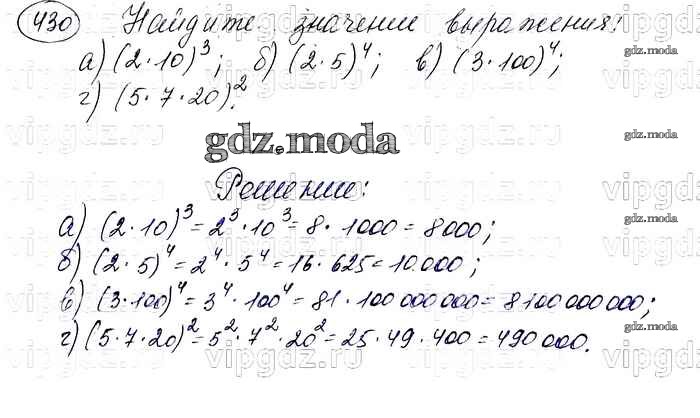 430 Найдите значение выражения:
а) (2·10)³; б) (2·5)⁴; в) (3·100)⁴;
г) (5·7·20)².
gdz.moda
Решение:
а) (2·10)³ = 2³·10³ = 8·1000 = 8000;
б) (2·5)⁴ = 2⁴·5⁴ = 16·625 = 10.000;
в) (3·100)⁴ = 3⁴·100⁴ = 81·100 000 000 = 8100 000 000;
г) (5·7·20)² = 5²·7²·20² = 25·49·400 = 490 000.
gdz.moda
gdz.moda
gdz.moda
gdz.moda
gdz.moda
vipgdz.ru